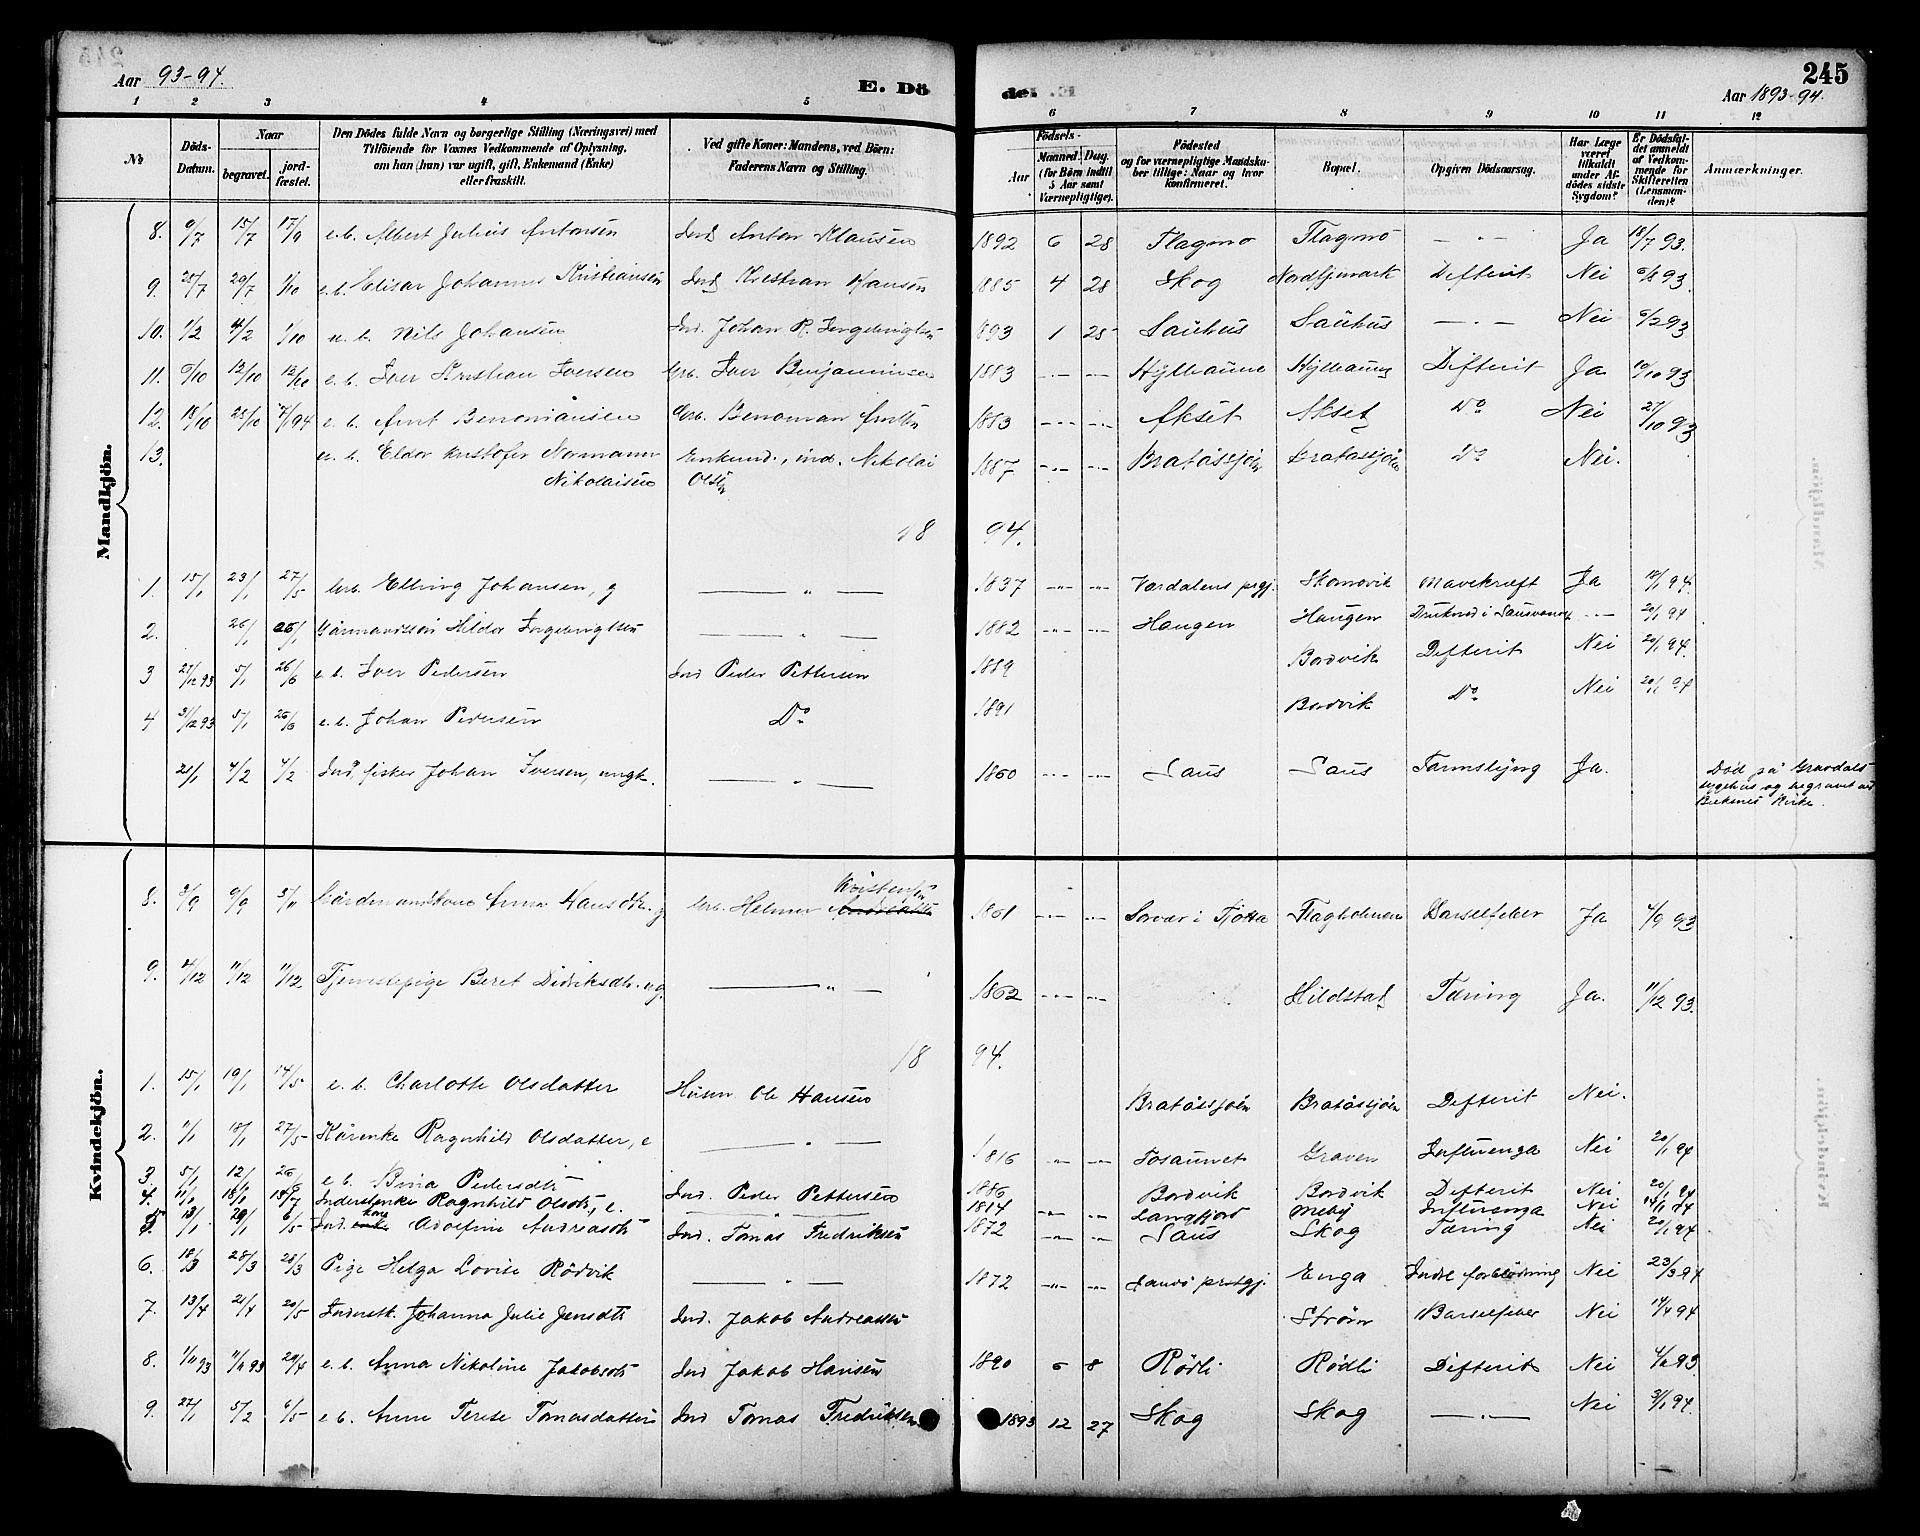 Aar 93-94. E. Dö
de. 245
Aar 1893-94.
1 2 3 4 5 6 7 8 9 10 11 12
No Döds-Datum. Naar begravet. jordfæstet. Den Dödes fulde Navn og borgerlige Stilling (Næringsvei) med Tilföiende for Voxnes Vedkommende af Oplysning, om han (hun) var ugift, gift, Enkemand (Enke) eller fraskilt. Ved gifte Koner: Mandens, ved Börn: Faderens Navn og Stilling. Födsels- Aar Maaned. Dag. (for Börn indtil 5 Aar samt Værnepligtige). Födested og for værnepligtige Mandskaber tillige: Naar og hvor konfirmeret. Bopæl. Opgiven Dödsaarsag. Har Læge været tilkaldt under Afdödes sidste Sygdom? Er Dödsfaldet anmeldt af Vedkommende for Skifteretten (Lensmanden)? Anmærkninger.
Mandkjön.
8. 9/7 15/7 17/9 e.b. Albert Julius Antonsen Ind. Anton Klausen 1892 6 28 Flagmo Flagmo — " — Ja 18/7 93.
9. 25/7 29/7 1/10 e.b. Elisar Johannes Kristiansen Ind. Kristian Hansen 1885 4 28 Skog Nordfjemark Defterit Nei 93.
10. 1/2 4/2 1/10 u.b. Nils Johansen Ind. Johan R. Ingebrigtsen 1893 1 25 Sauhus Sauhus — " — Nei 6/2 93
11. 9/10 12/10 12/10 e.b. Iver Kristian Iversen Grb. Iver Benjaminsen 1883 — " — — " — Hylhaune Hylhaung Difterit Ja 10/10 93
12. 18/10 25/10 94 e.b. Arnt Benoniansen Grb. Benonian Arntsen 1883 — " — — " — Akset Akset Do Nei 27/10 93
13. u.b. Eldor Kristofer Normann Nikolaisen Enkemd., ind. Nikolai Olsen 1887 — " — — " — Brataasjöen Brataasjöen Do Nei.
18 94.
1. 15/1 23/1 27/5 Grb. Elling Johansen, g — " — 1837 — " — — " — Værdalens prgj. Skomovik Mavekræft Ja 18/1 94.
2. 26/1 Gaardmandssön Hildor Ingebrigtsen — " — 1882 — " — — " — Haugen Haugen Druknet i Sausvannet — " — 20/1 94
3 27/12 93 5/1 26/6 e.b. Iver Pedersen Ind Peder Pettersen 1889 Bordvik Defterit Nei 20/1 94.
4 31/12 93 5/1 26/6 e.b. Johan Pedersen Do 1891 Bordvik Do Nei 20/1 94
21/1 4/2 4/2 Ind. fisker Johan Iversen, ungk. — " — 1860 — " — — " — Saus Saus Ja. Död på Gravdals sygehus og begravet ved Buksnes Kirke.
Kvindekjön.
8. 3/9 9/9 5/11 Gårdmandskone Anna Hansdtr. g Grb. Helmer Kristensen 1861 — " — — " — Sorvær i Tjötta Flagholmen Barselfeber Ja 4/9 93
9. 4/12 11/12 11/12 Tjenestepige Beret Didriksdtr. ug. — " — 1862 — " — — " — Hildstad Tæring Ja. 11/12 93.
18 94.
1. 15/1 19/1 14/5 e.b. Charlotte Olsdatter Husm Ole Hansen Brataasjöen Brataasjöen Defterit Nei.
2. 1/1 18/1 27/5 Kårenke Ragnhild Olsdatter, e — " — 1816 — " — — " — Tosaunet Graven Influenga Nei 20/1 94
3. 5/1 12/1 26/6 e.b. Bina Pedersdtr Ind. Peder Pettersen 1886 Bordvik Bordvik Defterit Nei 20/1 94
4. 11/1 18/1 15/7 Inderstenke Ragnhild Olsdtr, e. — " — 1814 — " — — " — Langfjord Meby Influenga Nei 94
5. 13/1 29/1 6/5 Ind. kone Adolfine Andreasdtr Ind. Tomas Fredriksen 1872 — " — — " — Saus Skog Tæring Nei 20/1 94
6. 18/3 28/3 28/3 Pige Helga Lovise Rödvik — " — 1872 — " — — " — prstgj. Enga Indre forblödning Nei 23/3 94
7. 13/4 21/4 20/5 Inderstk. Johanna Julie Jensdtr Ind. Jakob Andreassen Ström Barselfeber Nei 14/4 94
8. 1/11 93 11/11 93 29/4 e.b. Anna Nikoline Jakobsdtr Ind Jakob Hansen 1890 6 8 Rödli Rödli Difterit Nei 93
9. 27/1 5/2 6/5 e.b. Anne Terese Tomasdatter Ind Tomas Fredriksen 1893 12 27 Skog Skog — " — Nei 31/1 94.